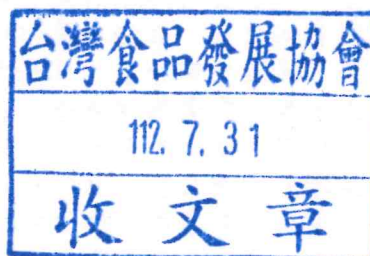 台灣食品發展協會
112. 7. 31
收文章